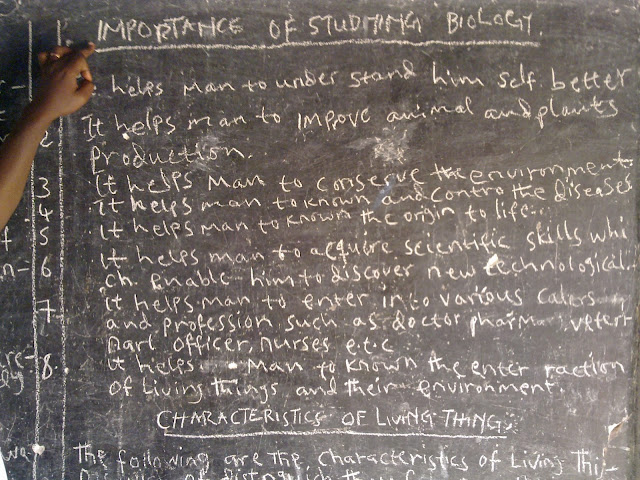 IMPORTANCE OF STUDYING BIOLOGY.
helps Man to under stand him self better
2 It helps man to improve animal and plants
production.
3 it helps Man to conserve the environment
4 it helps man to known and contro the diseases
5 it helps man to known the origin to life.
6 it helps man to acquire scientific skills whi
ch enable him to discover new technological.
7 it helps man to enter into various carers
and profession such as doctor pharm veteri
nari officer, nurses e.t.c
8. it helps Man to known the enter raction
of Living things and their environment.
CHARACTERISTICS OF LIVING THING;
The following are the characteristics of Living Thi-